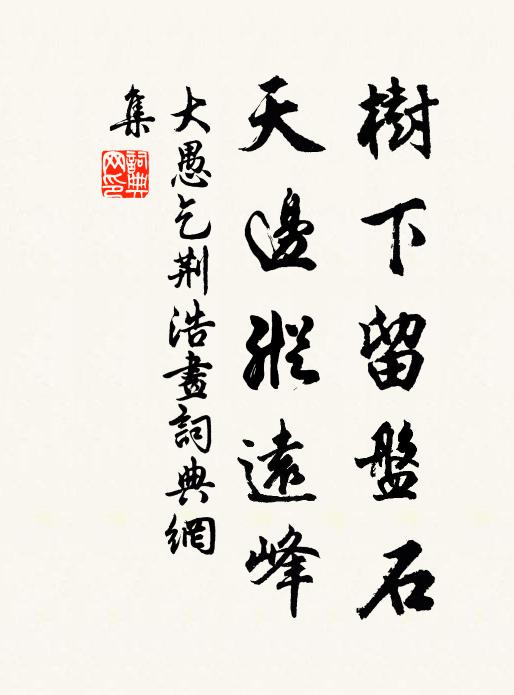 樹下留盤石
天邊縱遠峰
大愚乞荆浩畫詞典網
集
詞典
网印